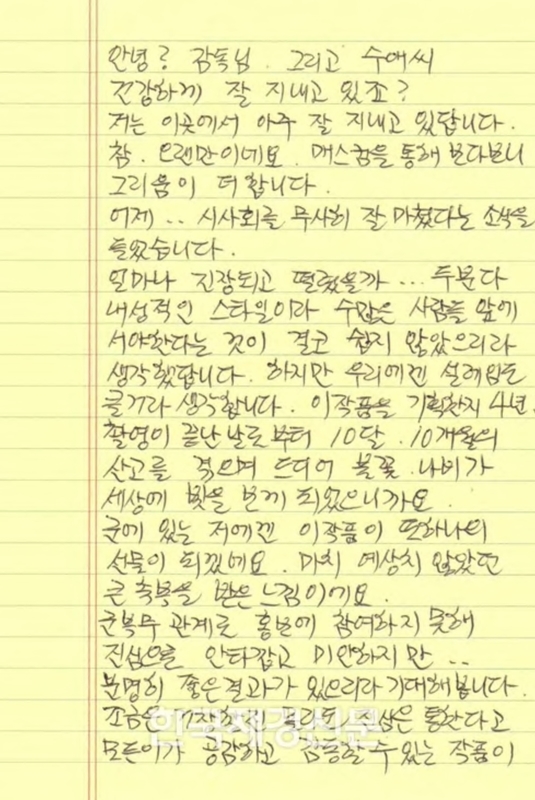 안녕? 감독님. 그리고 수애씨
건강하게 잘 지내고 있죠?
저는 이곳에서 아주 잘 지내고 있답니다.
참. 오랜만이네요. 매스컴을 통해 보다보니
그리움이 더합니다.
어제.. 시사회를 무사히 잘 마쳤다는 소식을
들었습니다.
얼마나 긴장되고 떨렸을까... 두분다
내성적인 스타일이라 수많은 사람들 앞에
서야한다는 것이 결코 쉽지 않았으리라
생각했답니다. 하지만 우리에겐 설레임도
클거라 생각합니다. 이작품을 기획한지 4년.
촬영이 끝난날로부터 10달. 10개월의
산고를 겪으며 드디어 불꽃.나비가
세상에 빛을 보게 되었으니까요.
군에 있는 저에겐 이작품이 또하나의
선물이 되겠네요. 마치 예상치 않았던
큰 축복을 받은 느낌이에요.
군복무 관계로 홍보에 참여하지 못해
진심으로 안타깝고 미안하지만..
분명히 좋은결과가 있으리라 기대해봅니다.
조금은 진심은 통한다고
모든이가 공감하고 감동할수있는 작품이
한국재경신문